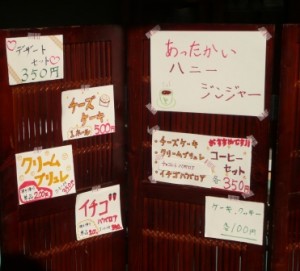 デザート
セット
350円
チーズ
ケーキ
500円
クリーム
ブリュレ
イチゴ
ババロア
あったかい
ハニー
ジンジャー
おすすめです!!
・チーズケーキ
・クリームブリュレ
・イチゴババロア
コーヒー
セット
350円
ケーキ、クッキー
各100円